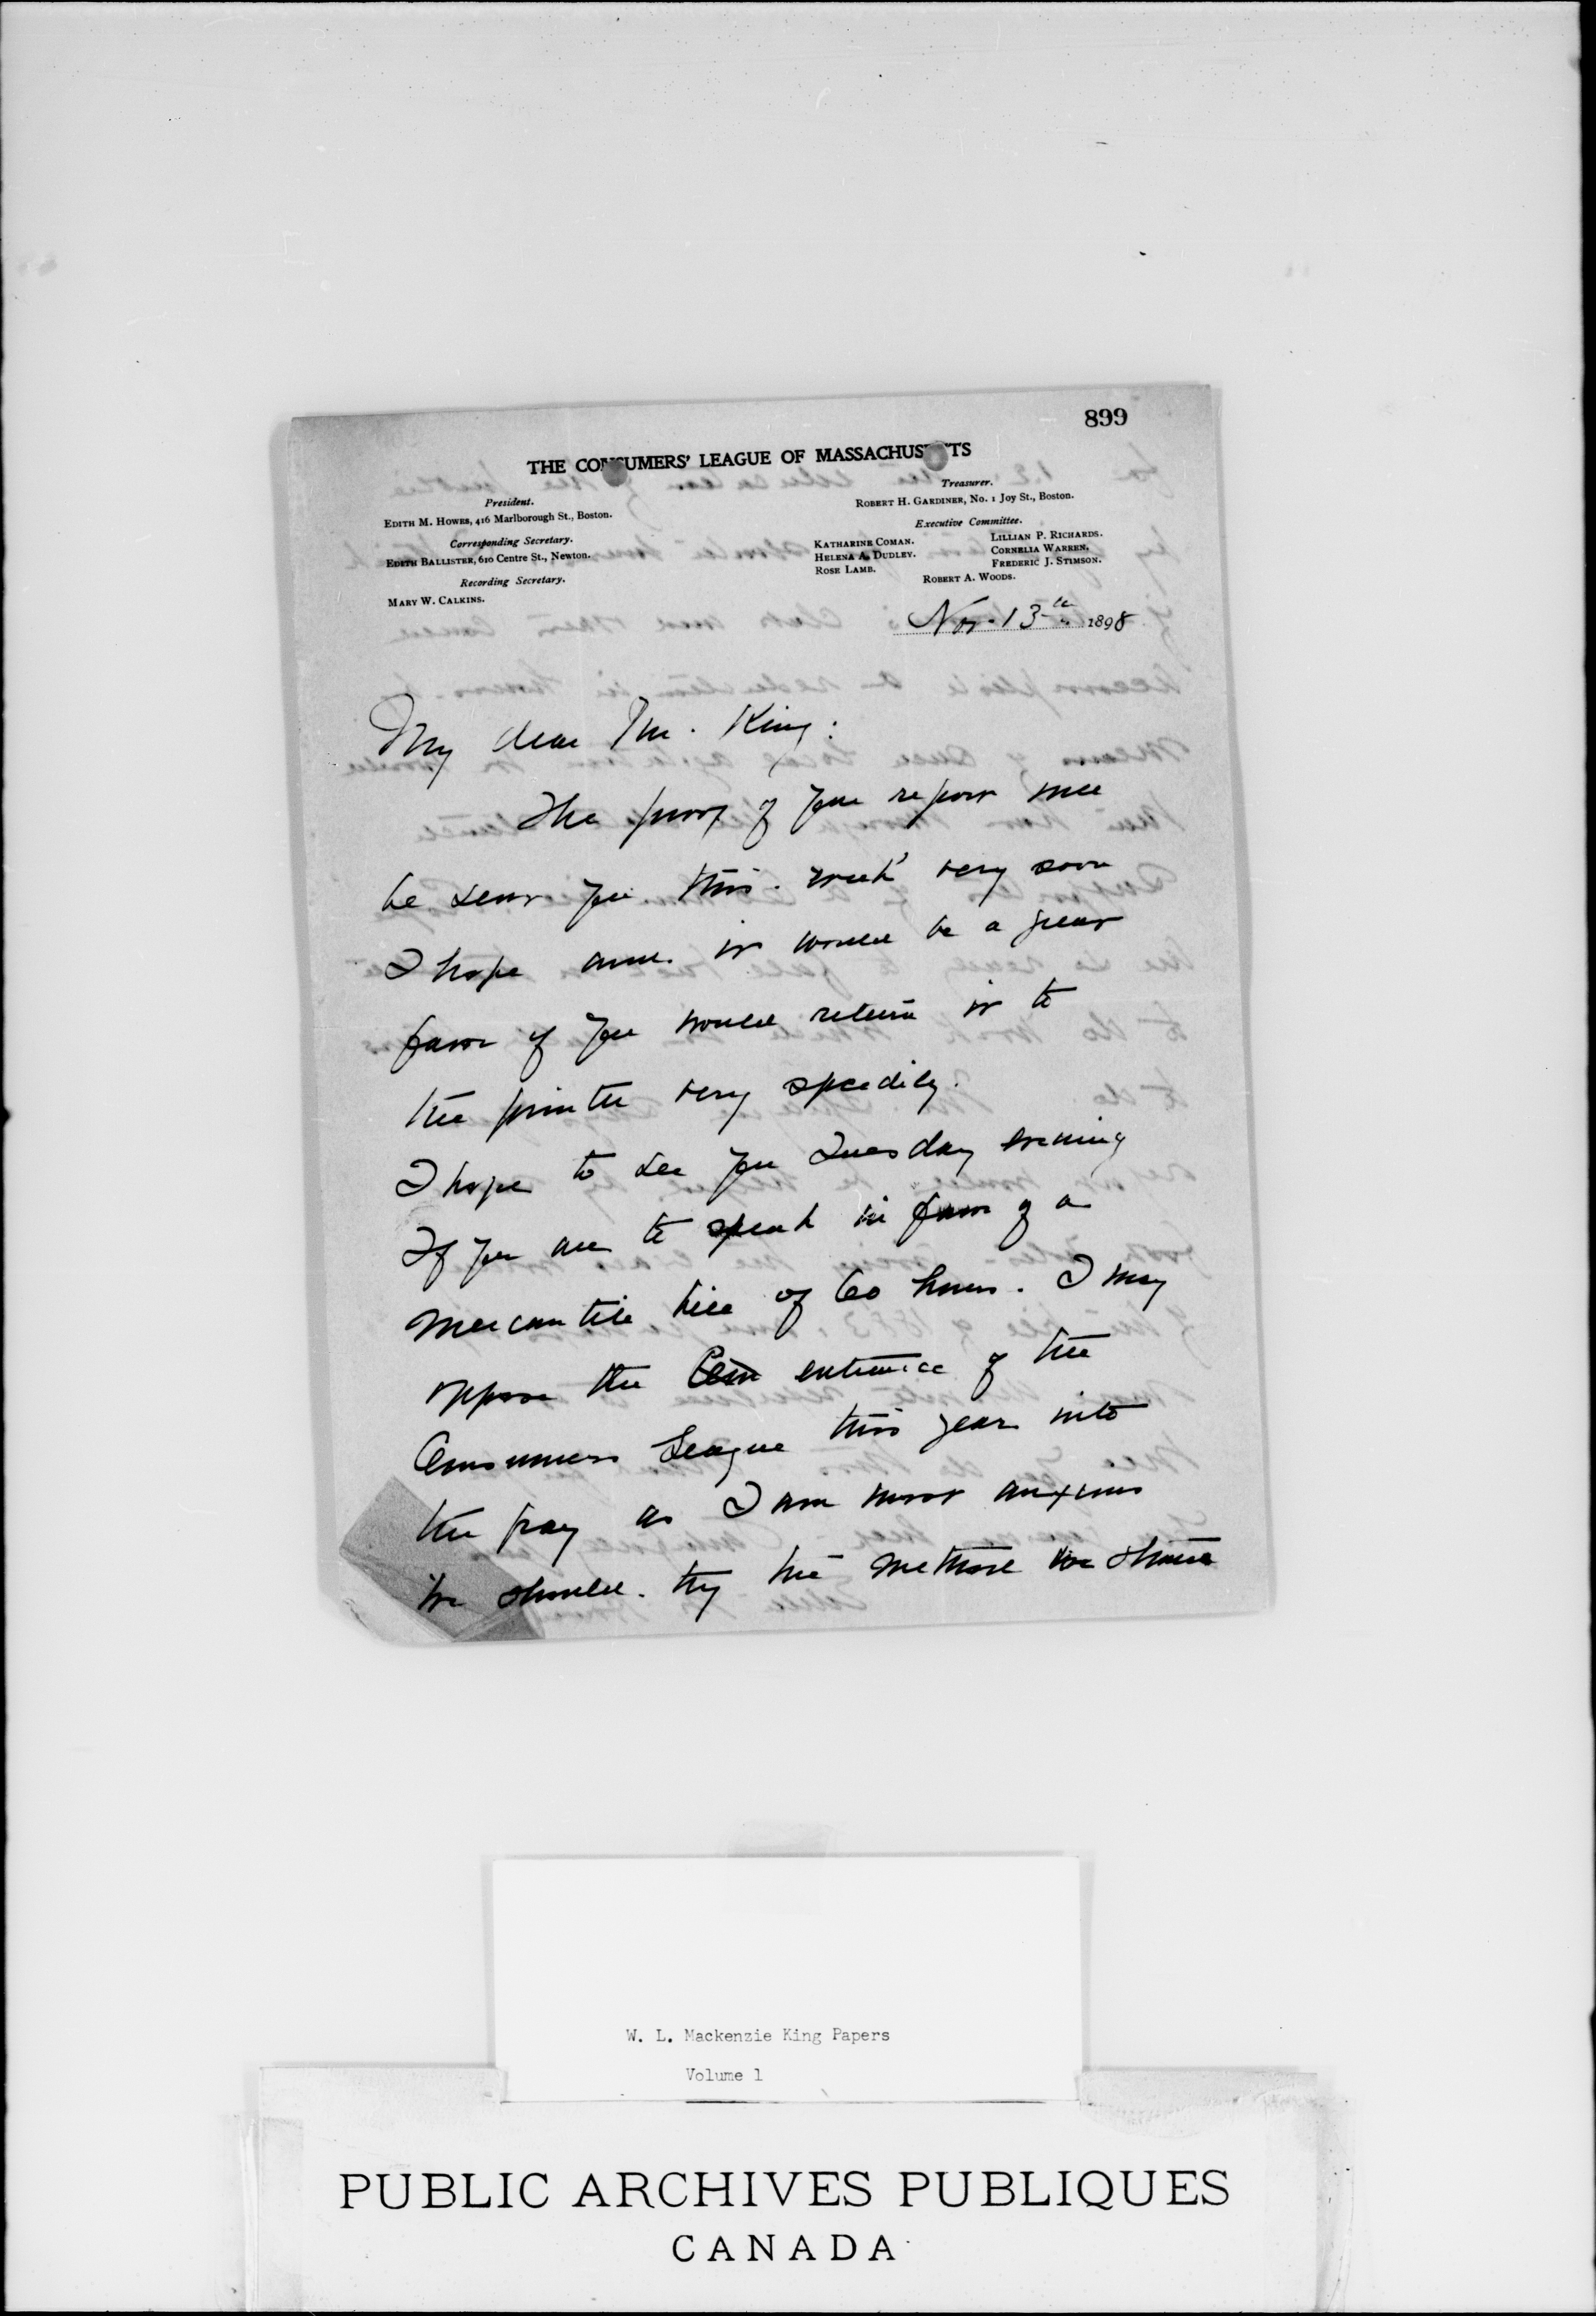 899
THE CONSUMERS' LEAGUE OF MASSACHUSETTS
President.
EDITH M. HOWES, 416 Marlborough St., Boston.
Corresponding Secretary.
EDITH BALLISTER, 610 Centre St., Newton.
Recording Secretary.
MARY W. CALKINS.
Treasurer.
ROBERT H. GARDINER, No. 1 Joy St., Boston.
Executive Committee.
KATHARINE COMAN. LILLIAN P. RICHARDS.
HELENA A. DUDLEY. CORNELIA WARREN.
ROSE LAMB. FREDERIC J. STIMSON.
ROBERT A. WOODS.
Nov. 13th 1898
My dear Mr. King:
The proof of your report will
be sent you this week very soon
I hope and it would be a great
favor if you would return it to
the printer very speedily.
I hope to see you Tuesday evening
If you are to speak in favor of a
mercantile bill of 60 hours. I may
oppose the entrance of the
Consumers League this year into
the fray as I am most anxious
we should try the method we
W. L. Mackenzie King Papers
Volume 1
PUBLIC ARCHIVES PUBLIQUES
CANADA